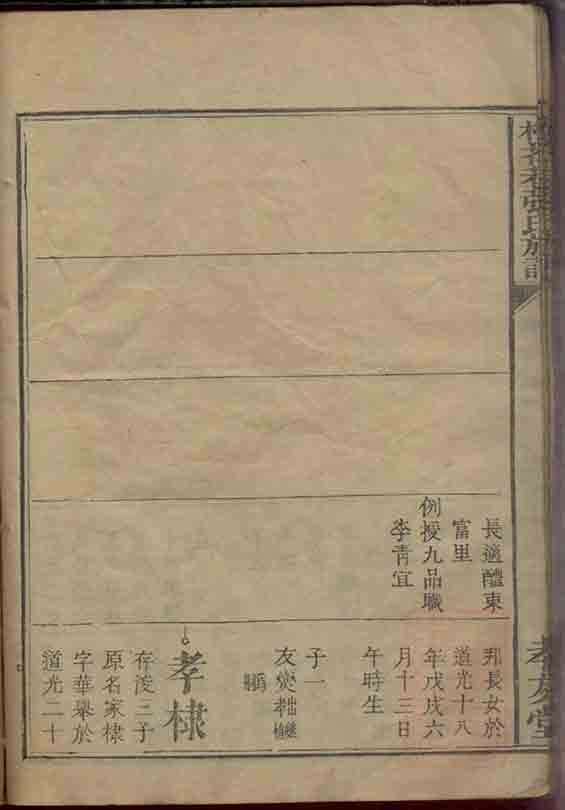 張氏族譜
孝友堂
長適醴東
富里
例授九品職
李青宜
邦長女於
道光十八
年戊戌六
月十三日
午時生
子一
友爕
孝棣
存浚三子
原名家棣
字華舉於
道光二十